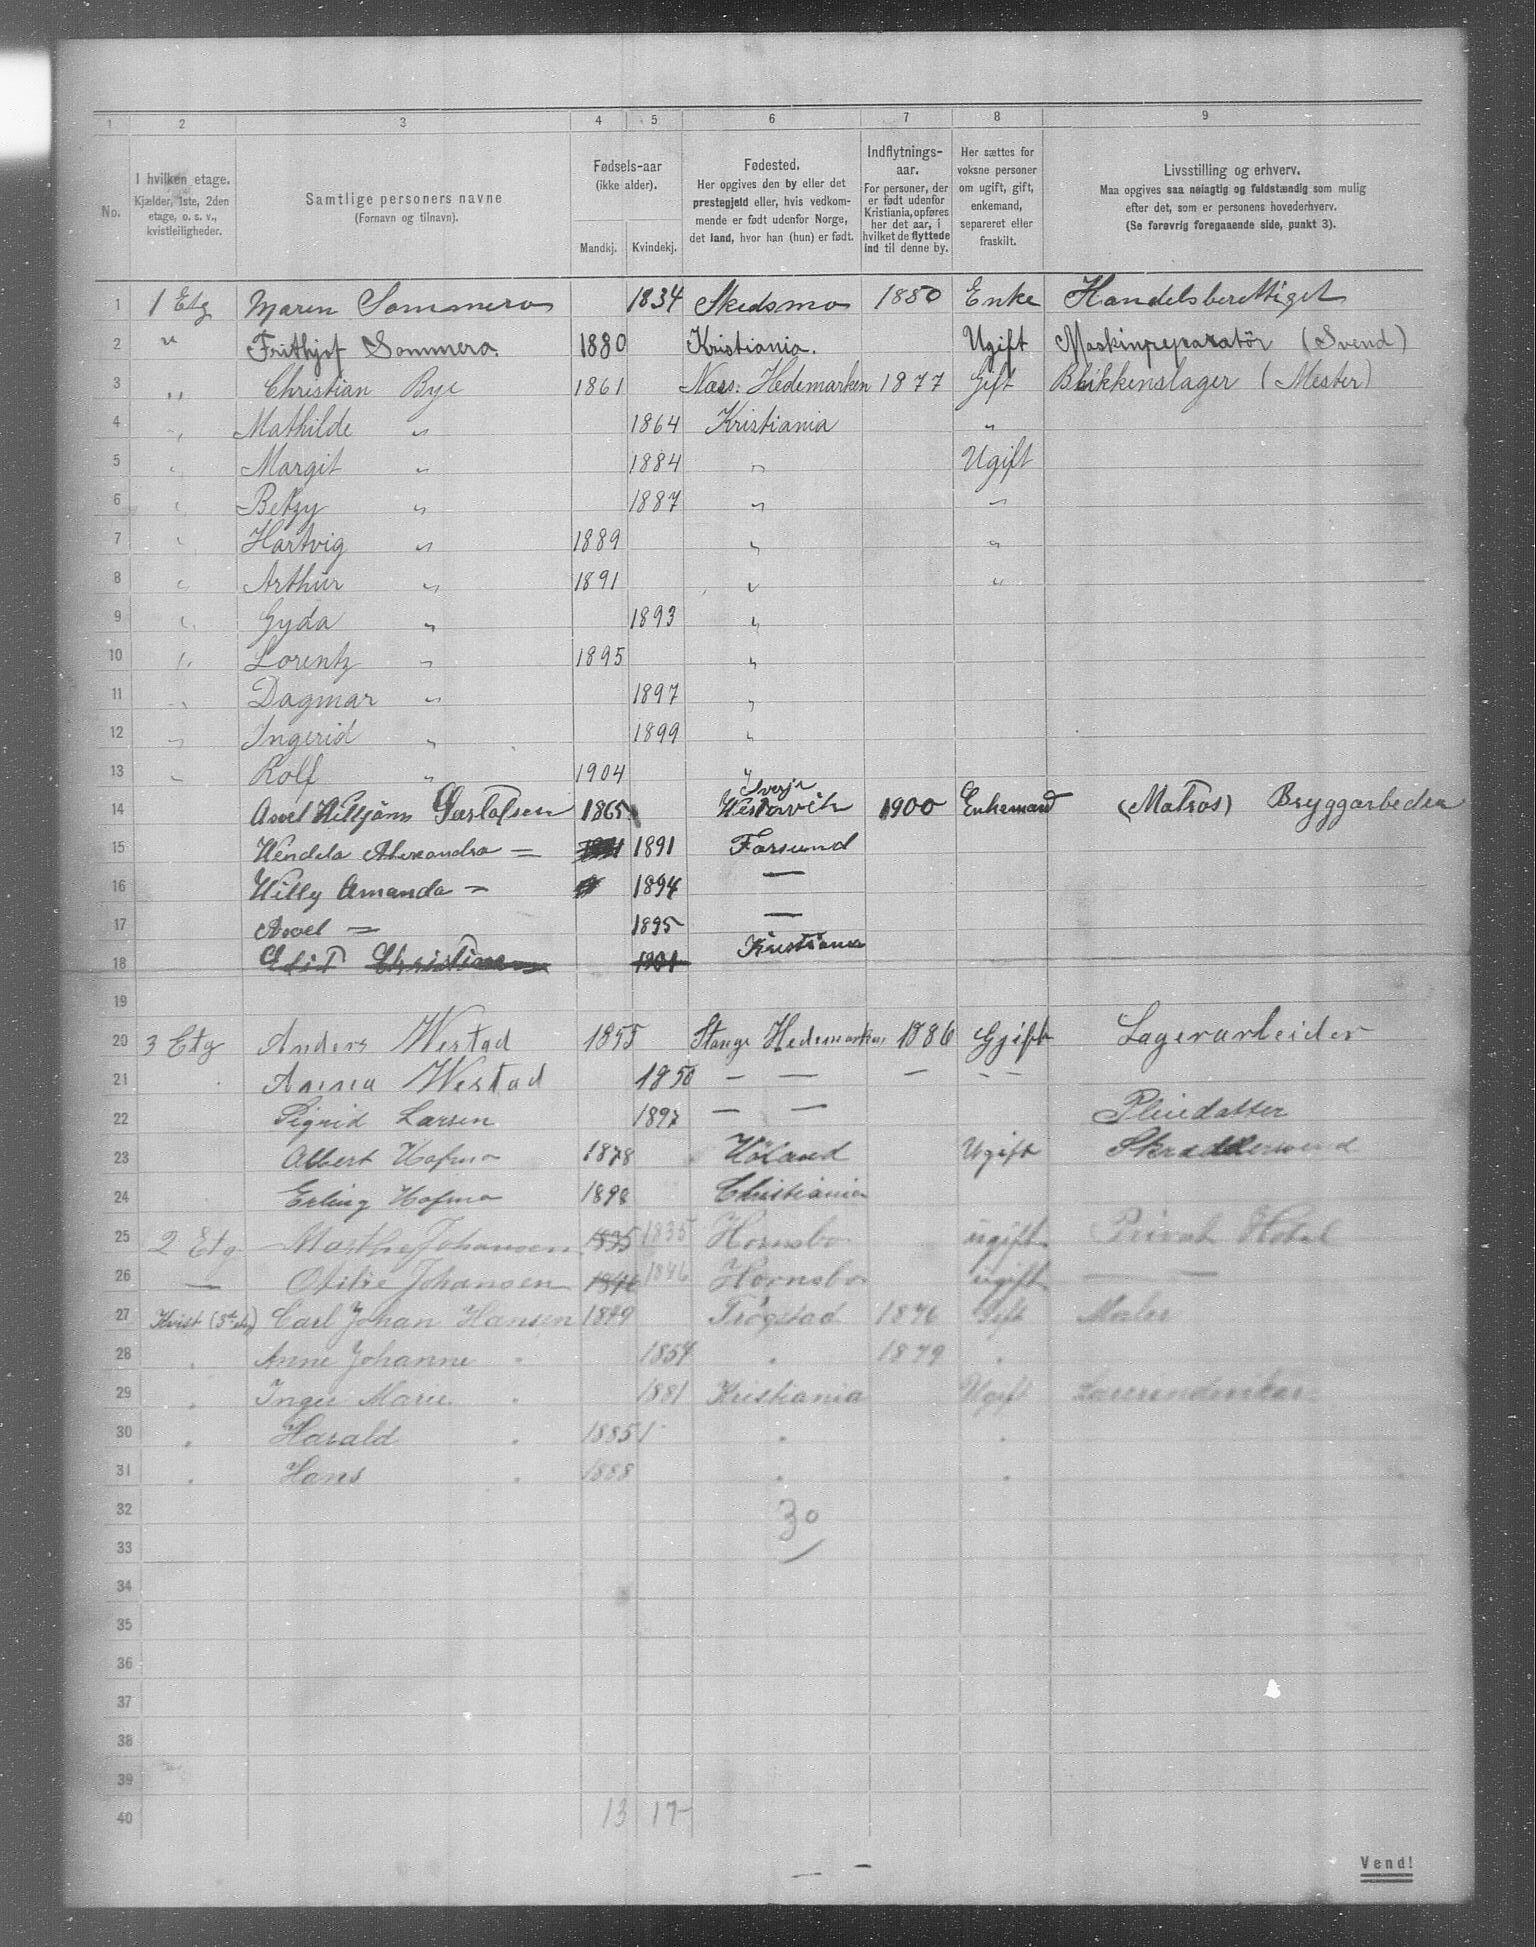 1 2 3 4 5 6 7 8 9
No. I hvilken etage. Kjælder, 1ste, 2den etage, o. s. v., kvistleiligheder. Samtlige personers navne (Fornavn og tilnavn). Fødsels-aar (ikke alder). Mandkj. Kvindekj. Fødested. Her opgives den by eller det prestegjeld eller, hvis vedkommende er født udenfor Norge, det land, hvor han (hun) er født. Indflytnings-aar. For personer, der er født udenfor Kristiania, opføres her det aar, i hvilket de flyttede ind til denne by. Her sættes for voksne personer om ugift, gift, enkemand, separeret eller fraskilt. Livsstilling og erhverv. Maa opgives saa nøiagtig og fuldstændig som mulig efter det, som er personens hovederhverv. (Se forøvrig foregaaende side, punkt 3).
1 1 Etg Maren Sommero 1834 Skedsmo 1850 Enke Handelsberettiget
2 " Frithjof Sommero. 1880 Kristiania. Ugift Maskinreparatör (Svend)
3 " Christian Bye 1861 Næs. Hedemarken 1877 Gift Blikkenslager (Mester)
4 " Mathilde " 1864 Kristiania "
5 " Margit " 1884 " Ugift
6 " Betzy " 1887 " "
7 " Hartvig " 1889 " "
8 " Arthur " 1891 " "
9 " Gyda " 1893 "
10 " Lorentz " 1895 "
11 " Dagmar " 1897 "
12 " Ingerid " 1899 "
13 " Rolf " 1904 "
14 Axel Wilhjäms 1865 Sverje Westervik 1900 Enkemand (Matros) Bryggarbeder
15 Wendela Alexandra = 1891 Farsund
16 Willy Amanda = 1894 —
17 Axel = 1895 —
18 Edit Christine 1901 Kristiania
19
20 3 Etg Anders Westad 1855 Stange Hedemarken 1886 Gift Lagerarbeider
21 Anna Westad 1850 — — — — —
22 Sigrid Larsen 1897 — — Pleiedatter
23 Albert Hofmo 1878 Höland Ugift Skræddersvend
24 Erling Hofmo 1898 Christiania
25 2 Etg Marthe Johansen 1835 1835 Hornsbo ugift Privat Hotel
26 — Otilie Johansen 1846 1846 Hornsbo ugift — —
27 Kvist (5te etg) Carl Johan Hansen 1849 Trøgstad 1876 Gift Maler
28 " Anne Johanne " 1854 " 1879 "
29 " Inger Marie " 1881 Kristiania Ugift
30 " Harald " 1885 " "
31 " Hans " 1888 " "
32 30
33
34
35
36
37
38
39
40 13 17
Vend!